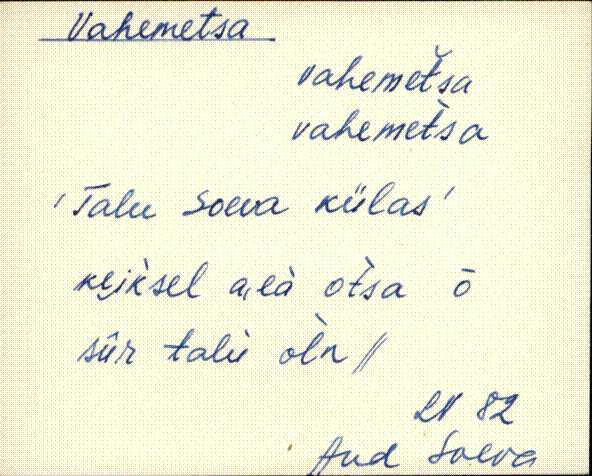 Vahemetsa
vahemet̆sa
vahemet̀sa
'Talu Soeva külas'
kejk̀sel aeà ot̀sa ō
sûr talù òln //
LN 82
Aud Soeva